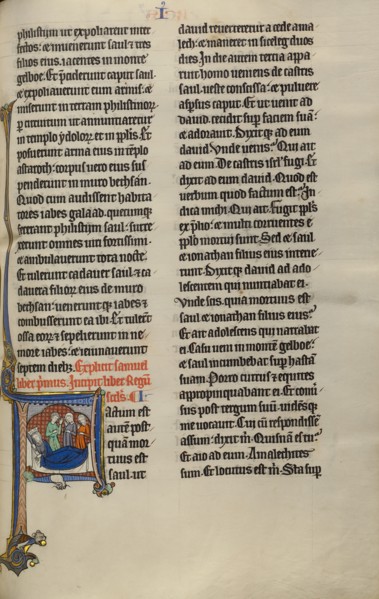 I
philistiim ut expoliarent inter
fectos: et invenerunt saul et tres
filios eius iacentes in monte
gelboe. Et preciderunt caput saul.
et expoliaverunt eum armis: et
miserunt in terram philistinor
per circuitum ut annuntiaretur
in templo ydolor. et in populis. Et
posuerunt arma eius in templo
astaroth: corpus vero eius sus
penderunt in muro bethsan.
Quod cum audissent habita
tores iabes galaad. quecumque
fecerant philistiim saul: surre
xerunt omnes viri fortissimi
et ambulaverunt tota nocte.
Et tulerunt cadaver saul. et ca
davera filior eius de muro
bethsan: veneruntque iabes et
combusserunt ea ibi. Et tulerunt
ossa eor et sepelierunt in ne
more iabes: et ieiunaverunt
septem diebus. Explicit samuel
liber primus. Incipit liber Regum
secundus. I
Factum est
autem post
quam mor
tuus est
saul. ut
david reverteretur a cede ama
lech: et maneret in siceleg duos
dies. In die autem tertia appa
ruit homo veniens de castris
saul. veste conscissa: et pulvere
aspersus caput. Et ut venit ad
david. cecidit super faciem suam:
et adoravit. Dixitque ad eum
david. Unde venis? Qui ait
ad eum. De castris israel fugi. Et
dixit ad eum david. Quod est
verbum quod factum est? In
dica michi. Qui ait. Fugit populus
ex prelio: et multi corruentes e
populo mortui sunt. Sed et saul
et ionathan filius eius interie
runt. Dixitque david ad ado
lescentem qui nuntiabat ei.
Unde scis. quia mortuus est
saul et ionathan filius eius?
Et ait adolescens qui narrabat
ei. Casu veni in montem gelboe:
et saul incumbebat super hastam
suam. Porro currus et equites
appropinquabant ei. Et conver
sus post tergum suum. vidensque
me vocavit. Cui cum respondissem
assum: dixit michi. Quisnam es tu?
Et aio ad eum. Amalechites
sum. Et locutus est michi. Sta super